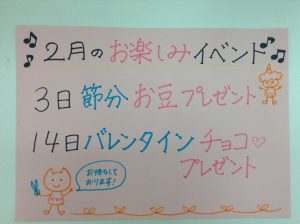 2月のお楽しみイベント
3日 節分 お豆プレゼント
14日 バレンタイン チョコ♡
プレゼント
お待ちして
おります!